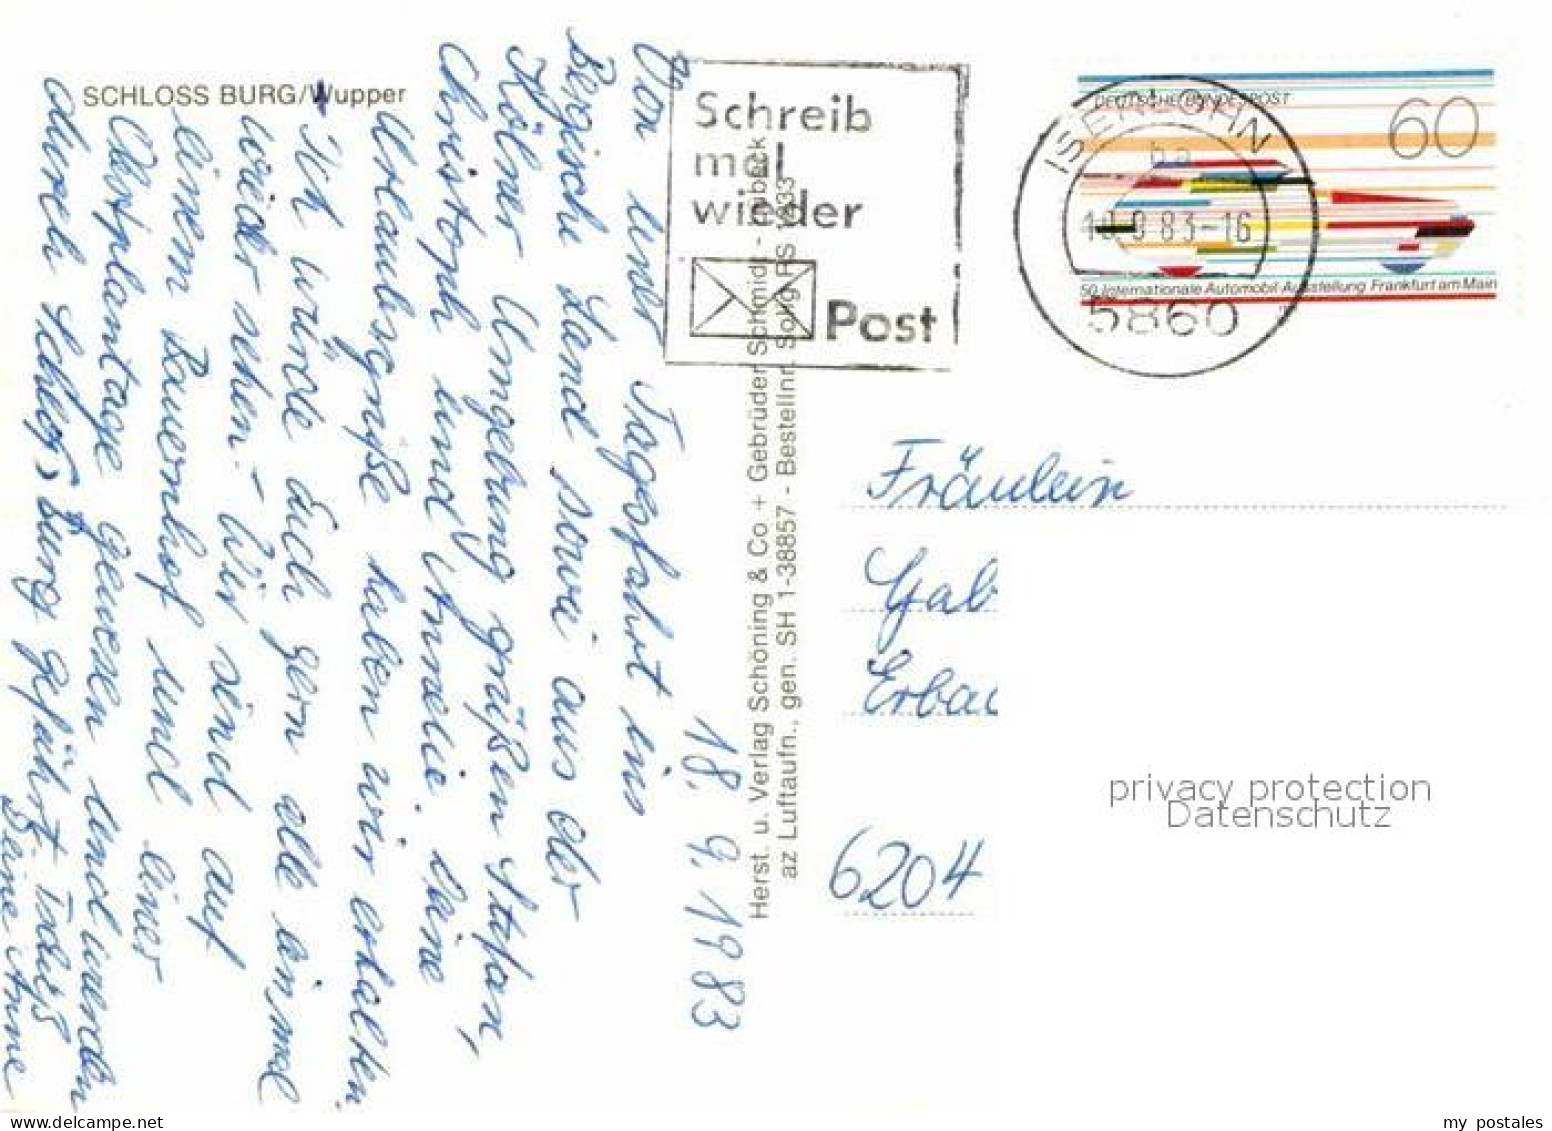 SCHLOSS BURG/Wupper
18.9.1983
Von und Tagesfahrt ins
Bergische Land sowie aus der
Kölner Umgebung grüßen Stefan,
Christoph und Annelie. Deine
Urlaubsgrüße haben wir erhalten
Ich würde Euch gern alle einmal
wieder sehen. - Wir sind auf
einem Bauernhof und einer
Obstplantage gewesen und werden
durch Schloß Burg geführt
Deine Anne
Herst. u. Verlag Schöning & Co + Gebrüder Schmidt - Lübeck
az Luftaufn., gen. SH 1-38857 - Bestellnr. Solig RS
Schreib
mal
wieder
Post
ISERLOHN
ba
-9 83-16
5860
DEUTSCHE BUNDESPOST
60
50. Internationale Automobil-Ausstellung Frankfurt am Main
Fräulein
Gab
Erbac
6204
privacy protection
Datenschutz
my postales